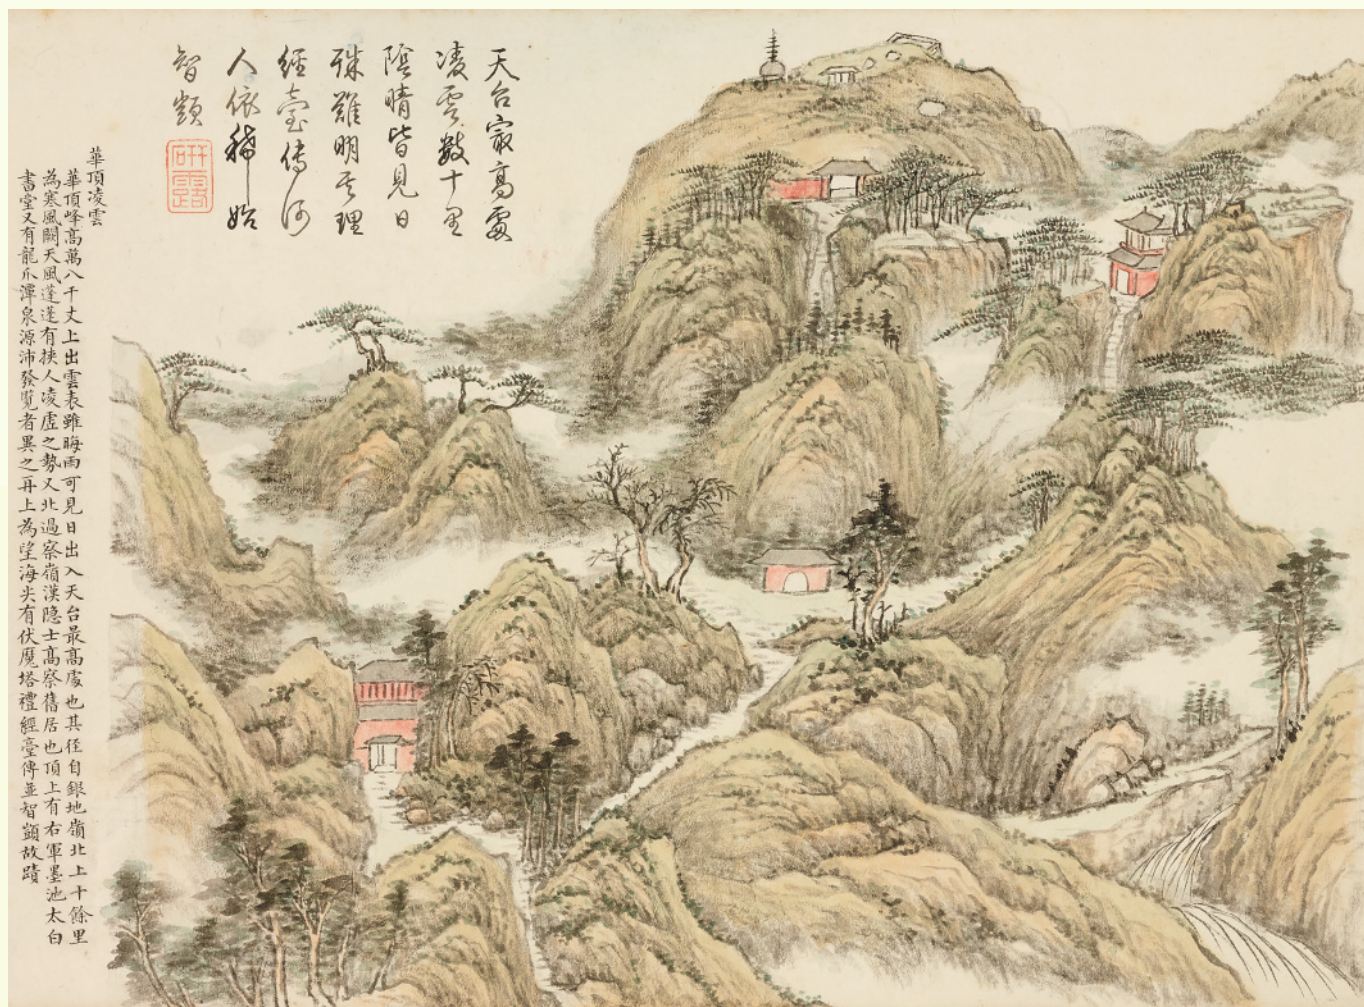 天台㝡高處
凌雲數十里
陰晴皆見日
殊難明其理
經臺傳何
人依稀始
智顗
研露
華頂凌雲
華頂峰高萬八千丈上出雲表雖晦雨可見日出入天台最高處也其徑自銀地嶺北上十餘里
為寒風闕天風蓬蓬有挾人凌虛之勢又北過察嶺漢隱士高察舊居也頂上有右軍墨池太白
書堂又有龍爪潭泉源沛發覽者異之再上為望海尖有伏魔塔禮經臺傳並智顗故蹟